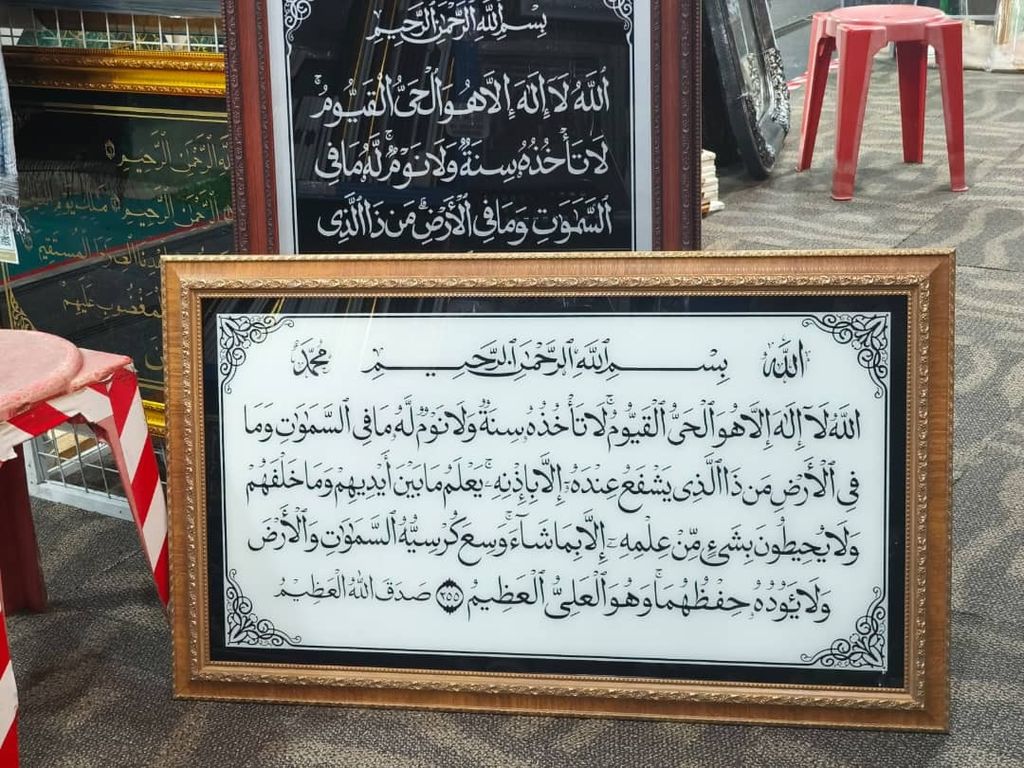 بِسْمِ اللَّهِ الرَّحْمَٰنِ الرَّحِيمِ
اللَّهُ لَا إِلَٰهَ إِلَّا هُوَ الْحَيُّ الْقَيُّومُ ۚ
لَا تَأْخُذُهُ سِنَةٌ وَلَا نَوْمٌ ۚ لَّهُ مَا فِي
السَّمَٰوَٰتِ وَمَا فِي الْأَرْضِ ۗ مَن ذَا الَّذِي
اللَّهِ الرَّحْمَٰنِ الرَّحِيمِ
الرَّحْمَٰنِ الرَّحِيمِ مَالِكِ يَوْمِ
الصِّرَاطَ الْمُسْتَقِيمَ
الْمَغْضُوبِ عَلَيْهِمْ
اللَّه بِسْمِ اللَّهِ الرَّحْمَٰنِ الرَّحِيمِ محمد
اللَّهُ لَا إِلَٰهَ إِلَّا هُوَ الْحَيُّ الْقَيُّومُ ۚ لَا تَأْخُذُهُ سِنَةٌ وَلَا نَوْمٌ لَّهُ مَا فِي السَّمَٰوَٰتِ وَمَا
فِي الْأَرْضِ مَن ذَا الَّذِي يَشْفَعُ عِندَهُ إِلَّا بِإِذْنِهِ ۚ يَعْلَمُ مَا بَيْنَ أَيْدِيهِمْ وَمَا خَلْفَهُمْ
وَلَا يُحِيطُونَ بِشَيْءٍ مِّنْ عِلْمِهِ إِلَّا بِمَا شَاءَ ۚ وَسِعَ كُرْسِيُّهُ السَّمَٰوَٰتِ وَالْأَرْضَ
وَلَا يَئُودُهُ حِفْظُهُمَا ۚ وَهُوَ الْعَلِيُّ الْعَظِيمُ ٢٥٥ صَدَقَ اللَّهُ الْعَظِيمُ